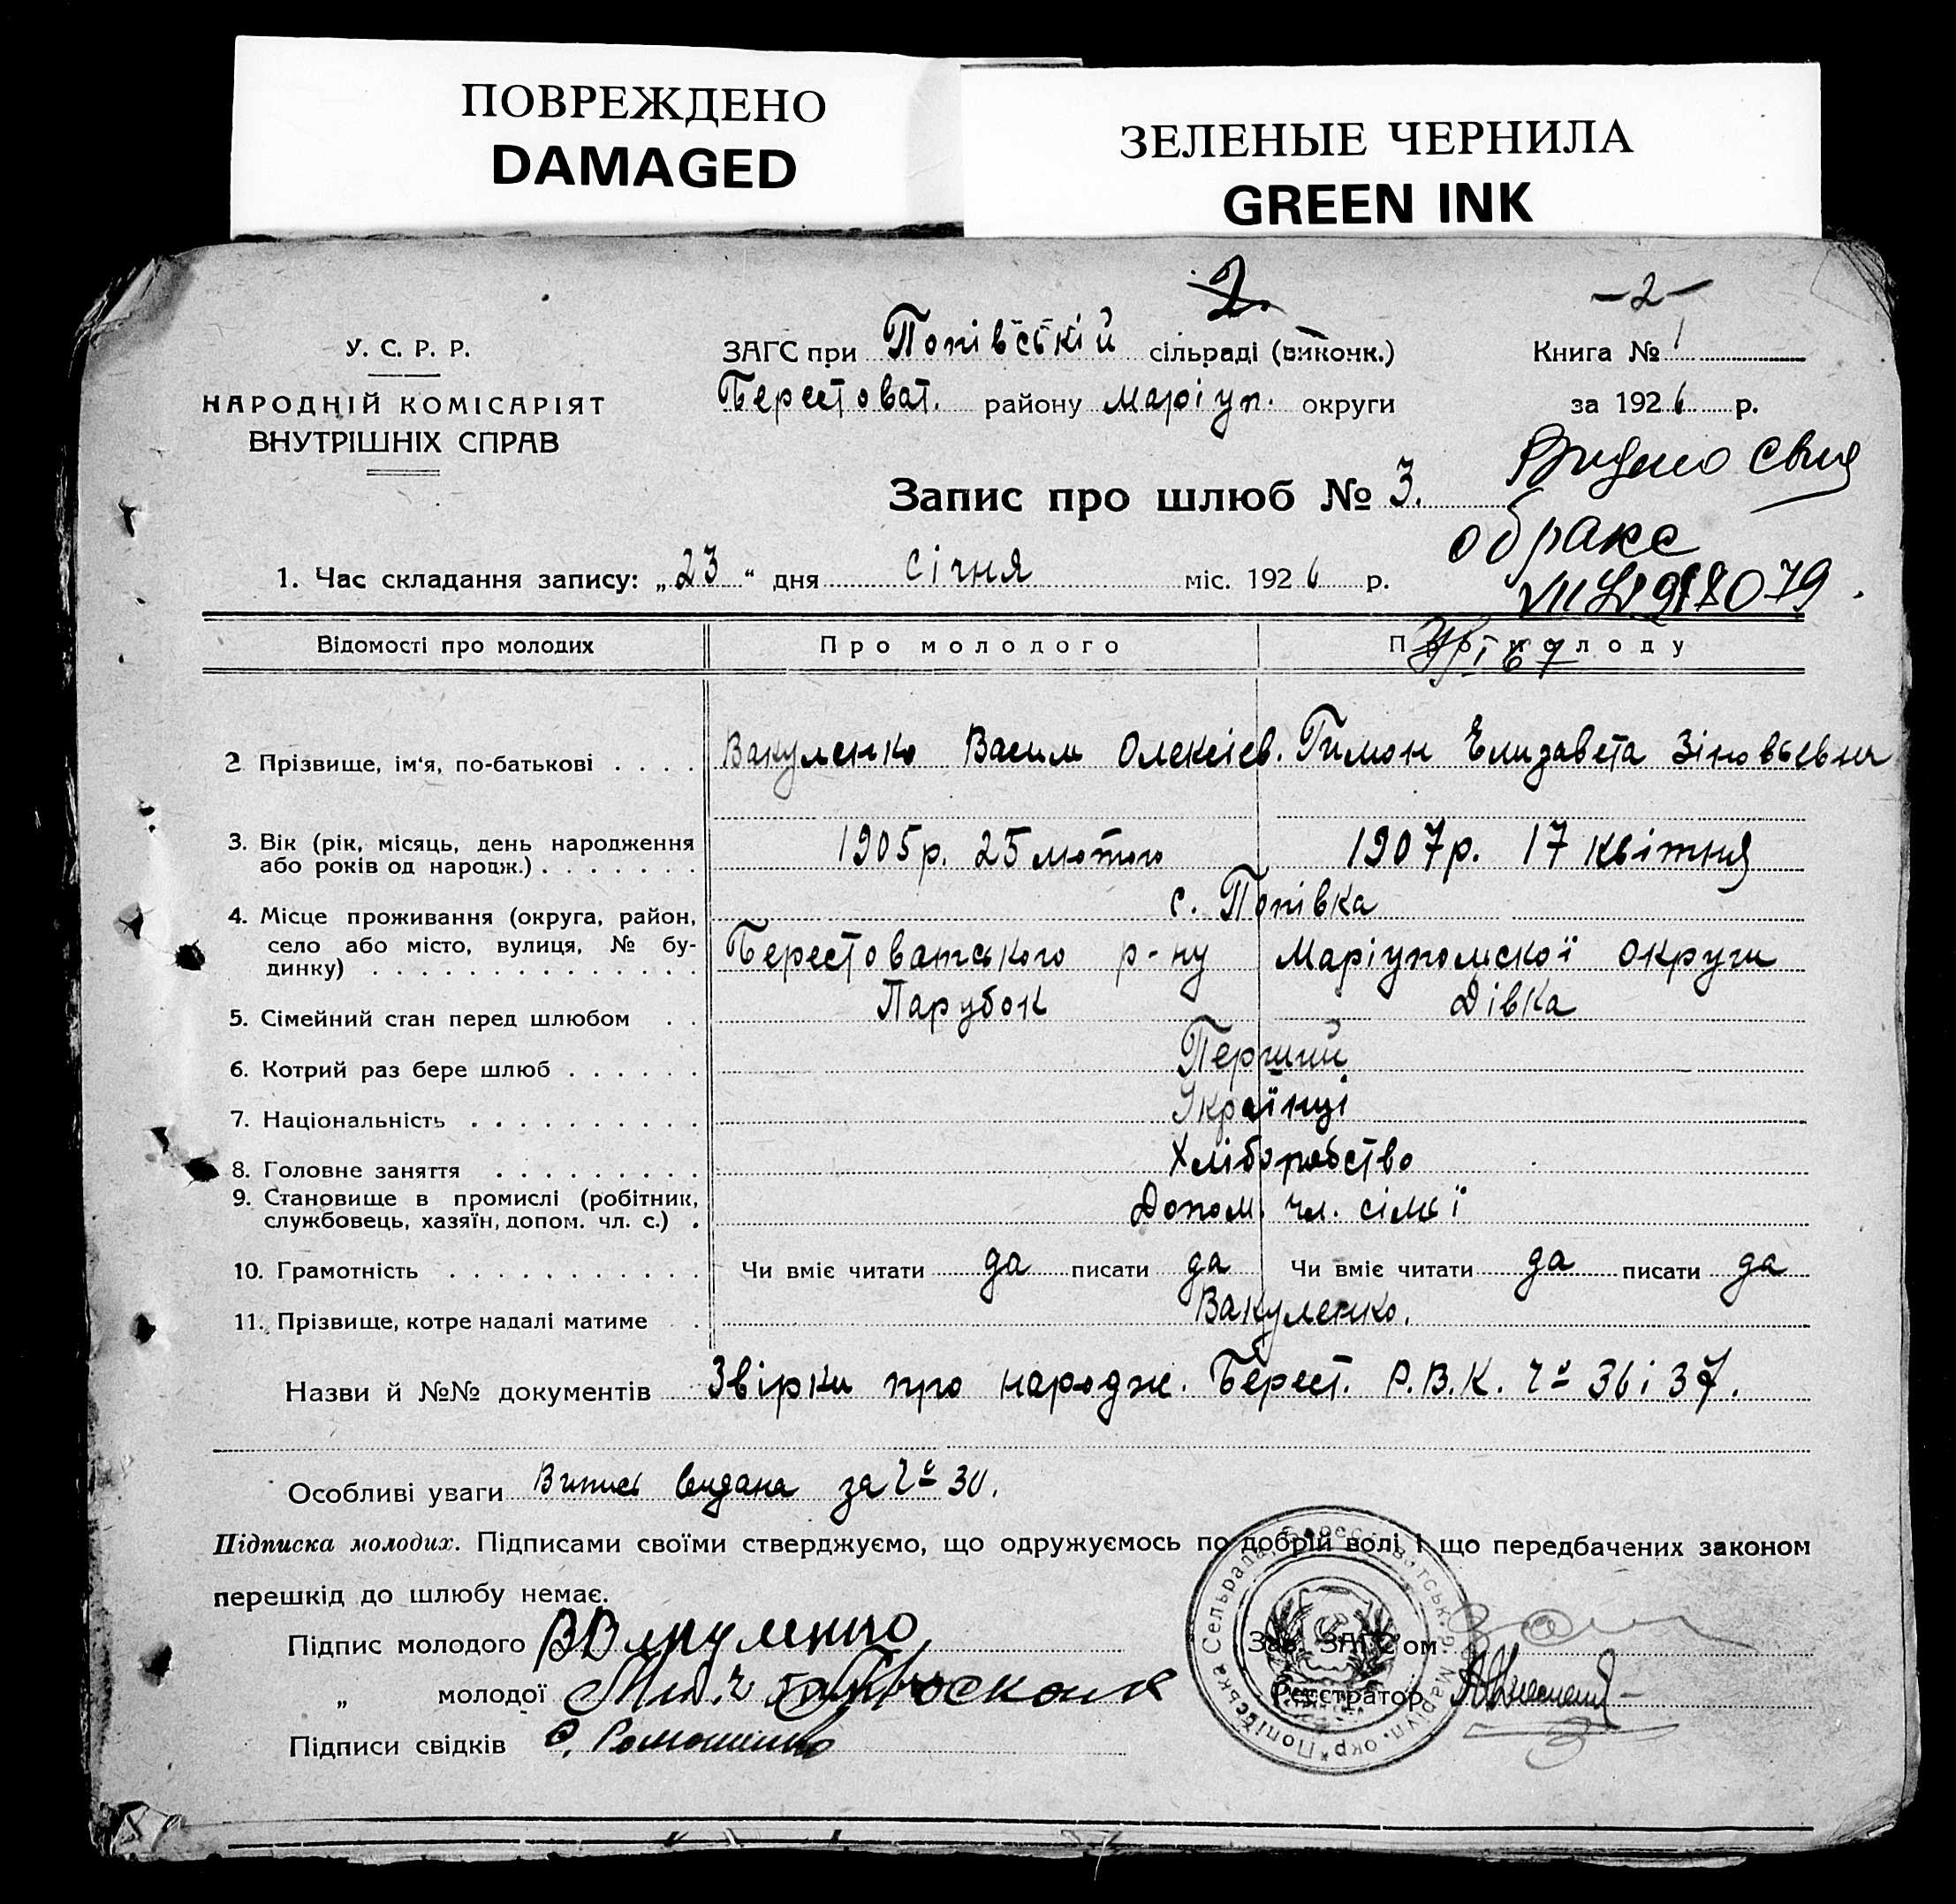 ПОВРЕЖДЕНО
DAMAGED
ЗЕЛЕНЫЕ ЧЕРНИЛА
GREEN INK
2.
–2–
У. С. Р. Р.
НАРОДНІЙ КОМІСАРІЯТ
ВНУТРІШНІХ СПРАВ
ЗАГС при Попівській сільраді (виконк.)
Берестоват. району Маріуп. округи
Книга № 1
за 1926 р.
Запис про шлюб № 3.
о браке
1. Час складання запису: „23“ дня січня міс. 1926 р.
Відомості про молодих
Про молодого
Про молоду
2 Прізвище, ім'я, по-батькові . . . .
Вакуленко Василь Олексієв.
Гимон Елизавета Зіновьевна
3. Вік (рік, місяць, день народження
або років од народж.) . . . . . . .
1905р. 25 лютого
1907р. 17 квітня
4. Місце проживання (округа, район,
село або місто, вулиця, № бу-
динку) . . . . . . . . . . . . . . .
с. Попівка
Берестоватського р-ну Маріупольскої округи
5. Сімейний стан перед шлюбом . .
Парубок
Дівка
6. Котрий раз бере шлюб . . . . . .
Перший
7. Національність . . . . . . . . . .
Українці
8. Головне заняття . . . . . . . . .
Хліборобство
9. Становище в промислі (робітник,
службовець, хазяїн, допом. чл. с.) .
Допом. чл. сімьї
10. Грамотність . . . . . . . . . . .
Чи вміє читати да писати да
Чи вміє читати да писати да
11. Прізвище, котре надалі матиме .
Вакуленко.
Назви й №№ документів Звірки про народж. Берест. Р.В.К. Ч° 36 і 37.
Особливі уваги Випись видана за Ч° 30.
Підписка молодих. Підписами своїми стверджуємо, що одружуємось по добрій волі і що передбачених законом
перешкід до шлюбу немає.
Підпис молодого ВВакуленко
„ молодої
Підписи свідків
Зав. ЗАГС'ом
Реєстратор
Попівська Сельрада, Берестоватськ. р. Маріуп. окр.